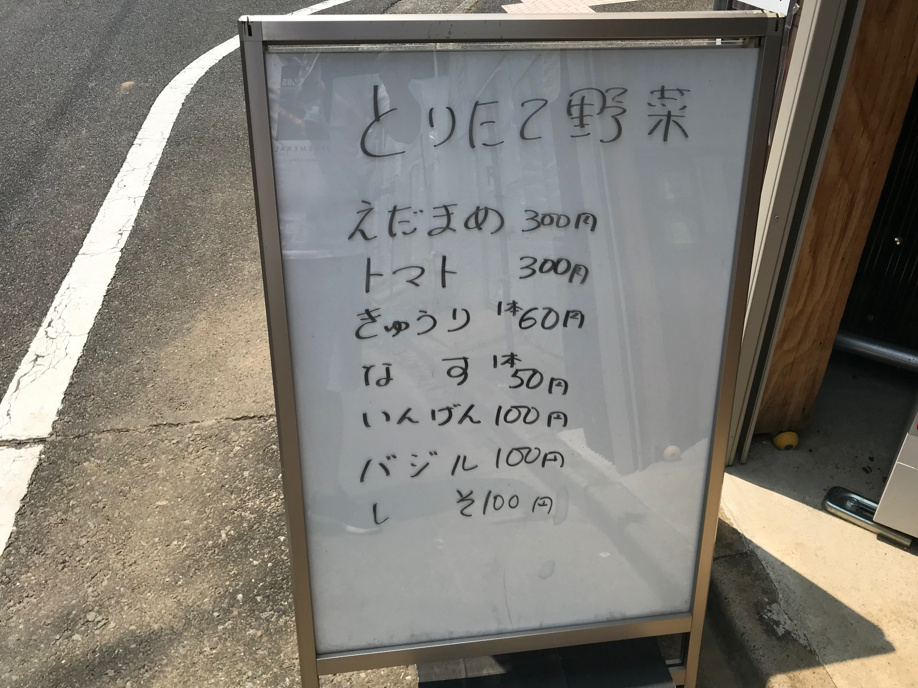 とりたて野菜
えだまめ 300円
トマト 300円
きゅうり 1本60円
なす 1本50円
いんげん 100円
バジル 100円
しそ 100円